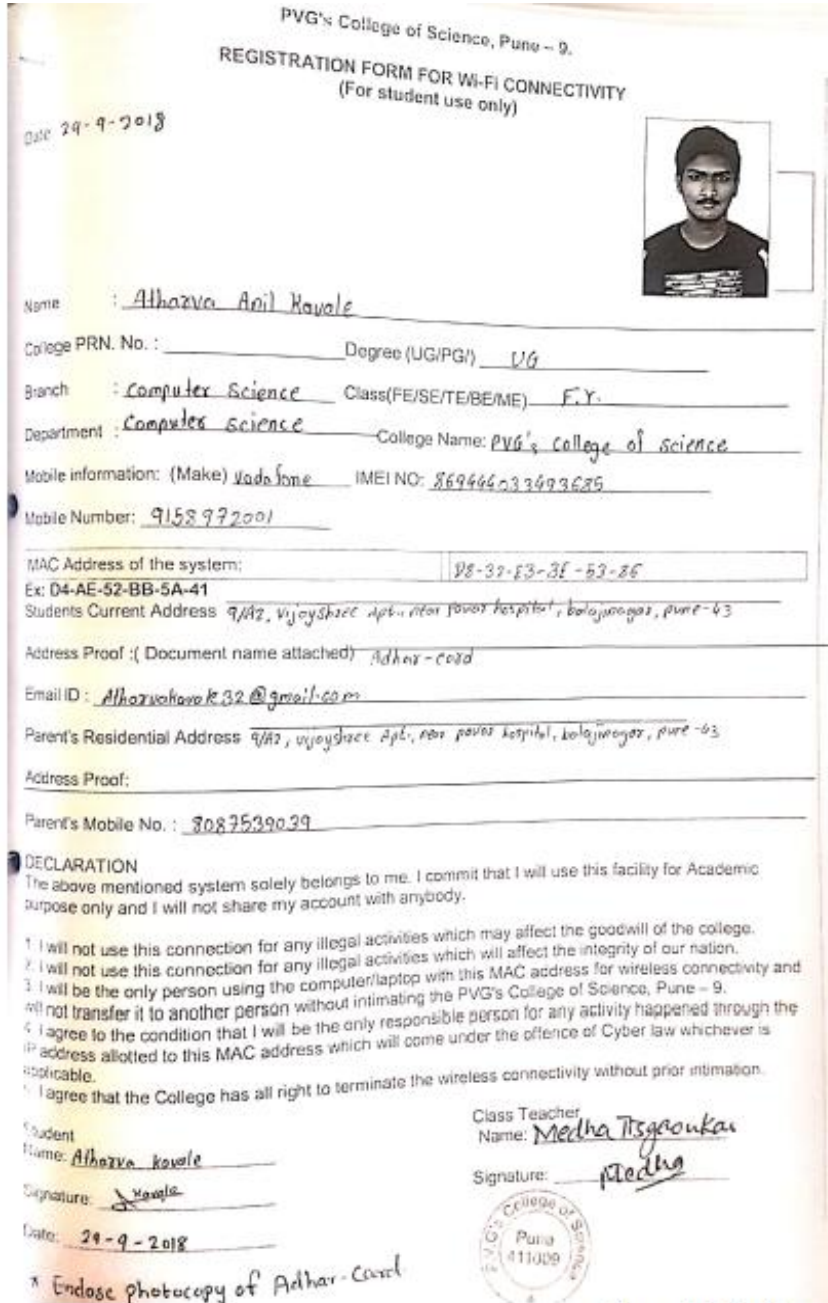 PVG's College of Science, Pune – 9.
REGISTRATION FORM FOR Wi-Fi CONNECTIVITY
(For student use only)
Date 29-9-2018
Name : Atharva Anil Kavale
College PRN. No. : Degree (UG/PG/) UG
Branch : Computer Science Class(FE/SE/TE/BE/ME) F.Y.
Department : Computer Science College Name: PVG's College of science
Mobile information: (Make) Vodafone IMEI NO: 869446033493685
Mobile Number: 9158972001
MAC Address of the system:
Ex: D4-AE-52-BB-5A-41
Students Current Address 9/A2, vijayshree Apt., near pavar hospital, balajinagar, pune-43
Address Proof :( Document name attached) Adhar-card
Email ID : @gmail.com
Parent's Residential Address 9/A2, vijayshree Apt., near pavar hospital, balajinagar, pune-43
Address Proof:
Parent's Mobile No. : 8087539039
DECLARATION
The above mentioned system solely belongs to me. I commit that I will use this facility for Academic
purpose only and I will not share my account with anybody.
1. I will not use this connection for any illegal activities which may affect the goodwill of the college.
2. I will not use this connection for any illegal activities which will affect the integrity of our nation.
3. I will be the only person using the computer/laptop with this MAC address for wireless connectivity and
will not transfer it to another person without intimating the PVG's College of Science, Pune – 9.
4. I agree to the condition that I will be the only responsible person for any activity happened through the
IP address allotted to this MAC address which will come under the offence of Cyber law whichever is
applicable.
I agree that the College has all right to terminate the wireless connectivity without prior intimation.
Student
Name: Atharva kavale
Signature: Kavale
Date: 29-9-2018
* Endose photocopy of Adhar-Card
Class Teacher
Name: Medha
Signature: Medha
P.V.G's College of Science
Pune
411009